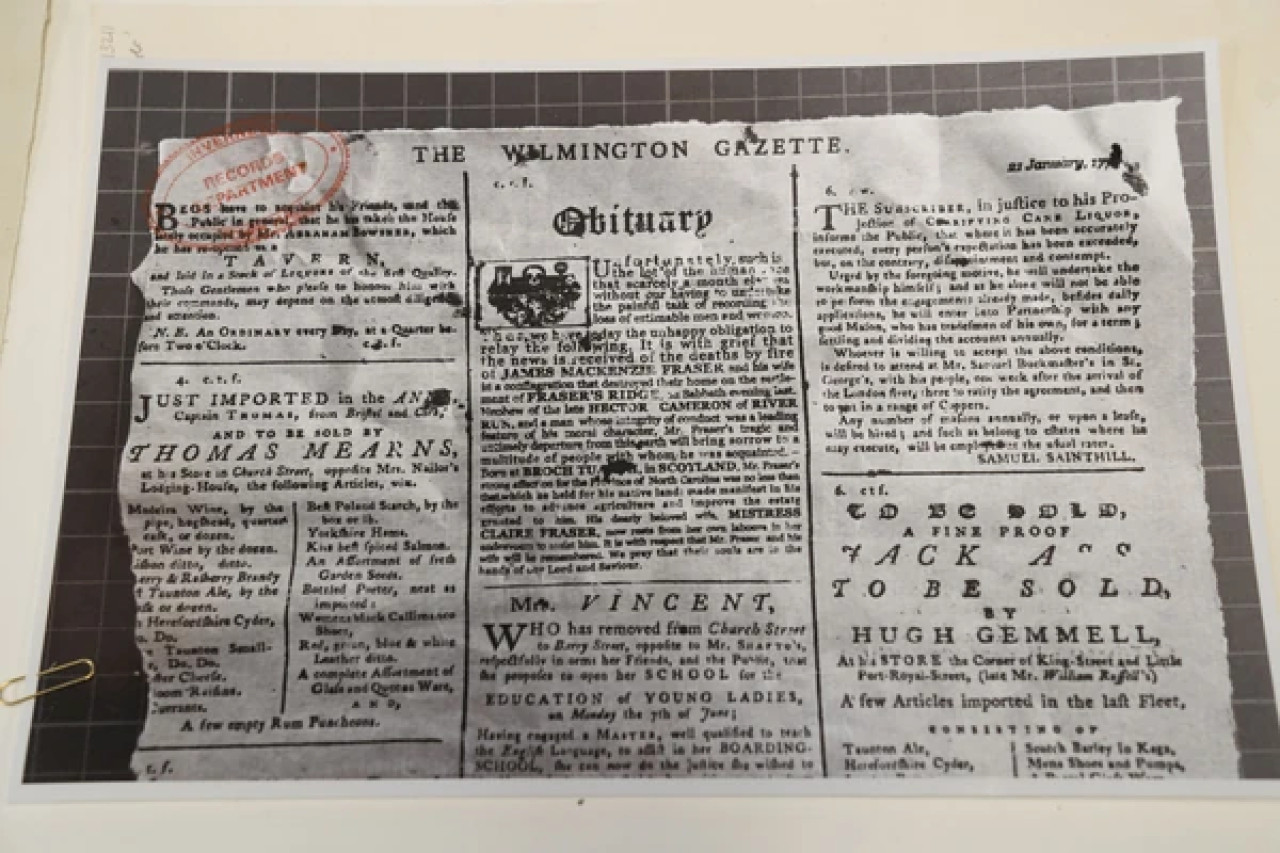 THE WILMINGTON GAZETTE.
21 January, 177
RECORDS
DEPARTMENT
BEGS leave to acquaint his Friends, and the
Public in general, that he has taken the House
lately occupied by Mr. ABRAHAM BOWSHER, which
he has
TAVERN,
and laid in a Stock of LIQUORS of the Best Quality.
Those Gentlemen who please to honour him with
their commands, may depend on the utmost diligence
and attention.
N.B. An ORDINARY every Day, at a Quarter be-
fore Two o'Clock. c.t.f.
4. c.t.f.
JUST IMPORTED in the
Captain THOMAS, from Bristol and Cork,
AND TO BE SOLD BY
THOMAS MEARNS,
at his Store in Church Street, opposite Mrs. Nailor's
Lodging-House, the following Articles, viz.
Madeira Wine, by the
pipe, hogshead, quarter
cask, or dozen.
Port Wine by the dozen.
Lisbon ditto, ditto.
erry & Rasberry Brandy
Taunton Ale, by the
ask or dozen.
Herefordshire Cyder,
o. Do.
Taunton Small-
Do. Do.
ter Cheese.
loom Raisins.
Currants.
Best Poland Starch, by the
box or lb.
Yorkshire Hams.
Kitts best spiced Salmon.
An Assortment of fresh
Garden Seeds.
Bottled Porter, neat as
imported:
Womens black Callimanco
Shoes,
Red, green, blue & white
Leather ditto.
A complete Assortment of
Glass and Queens Ware,
AND,
A few empty Rum Puncheons.
c. f.
c. t. f.
Obituary
Unfortunately, such is
the lot of the human race
that scarcely a month elapses
without our having to undertake
the painful task of recording the
loss of estimable men and women.
Thus, we have today the unhappy obligation to
relay the following. It is with grief that
the news is received of the deaths by fire
of JAMES MACKENZIE FRASER and his wife
in a conflagration that destroyed their home on the settle-
ment of FRASER'S RIDGE, on Sabbath evening last.
Nephew of the late HECTOR CAMERON of RIVER
RUN, and a man whose integrity of conduct was a leading
feature of his moral character, Mr. Fraser's tragic and
untimely departure from this earth will bring sorrow to a
multitude of people with whom he was acquainted. –
Born at BROCH TUARACH, in SCOTLAND, Mr. Fraser's
strong affection for the Province of North Carolina was no less than
that which he held for his native land: made manifest in his
efforts to advance agriculture and improve the estate
granted to him. His dearly beloved wife, MISTRESS
CLAIRE FRASER, now rests from her own labours in her
endeavours to assist him. It is with respect that Mr. Fraser and his
wife will be remembered. We pray that their souls are in the
hands of our Lord and Saviour.
Mrs. VINCENT,
WHO has removed from Church Street
to Barry Street, opposite to Mr. SHAFTO'S,
respectfully informs her Friends, and the Public, that
she proposes to open her SCHOOL for the
EDUCATION of YOUNG LADIES,
on Monday the 7th of June;
Having engaged a MASTER, well qualified to teach
the English Language, to assist in her BOARDING-
SCHOOL, she can now do the justice she wished to
6. c.w.
THE SUBSCRIBER, in justice to his Pro-
jection of CLARIFYING CANE LIQUOR,
informs the Public, that where it has been accurately
executed, every person's expectation has been exceeded,
but, on the contrary, disappointment and contempt.
Urged by the foregoing motive, he will undertake the
workmanship himself; and as he alone will not be able
to perform the engagements already made, besides daily
applications, he will enter into Partnership with any
good Mason, who has tradesmen of his own, for a term;
settling and dividing the accounts annually.
Whoever is willing to accept the above conditions,
is desired to attend at Mr. Samuel Buckmaster's in St.
George's, with his people, one week after the arrival of
the London fleet, there to ratify the agreement, and then
to put in a range of Coppers.
Any number of masons annually, or upon a lease,
will be hired; and such as belong to estates where he
may execute, will be employed on the usual rates.
SAMUEL SAINTHILL.
6. c t f.
TO BE SOLD,
A FINE PROOF
JACK ASS
TO BE SOLD,
BY
HUGH GEMMELL,
At his STORE the Corner of King-Street and Little
Port-Royal-Street, (late Mr. William Russell's)
A few Articles imported in the last Fleet,
CONSISTING OF
Taunton Ale,
Herefordshire Cyder,
Scotch Barley in Kegs,
Mens Shoes and Pumps,